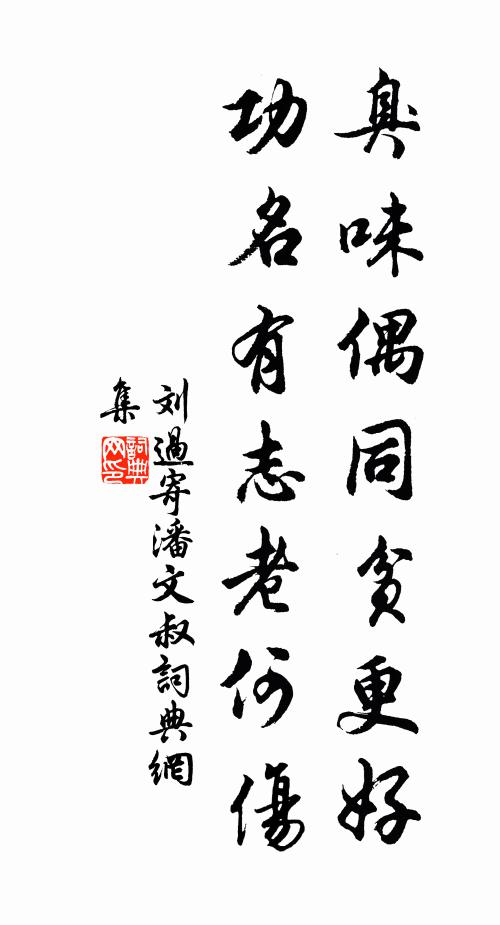 臭味偶同貧更好
功名有志老何傷
刘過寄潘文叔詞典網
集
詞典
网印